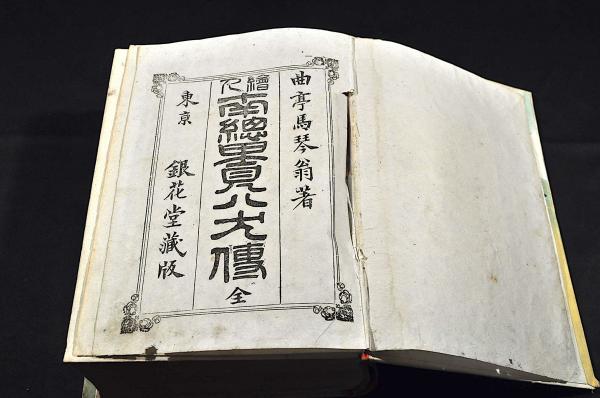 曲亭馬琴翁著
繪入
南總里見八犬傳
全
東京
銀花堂藏版